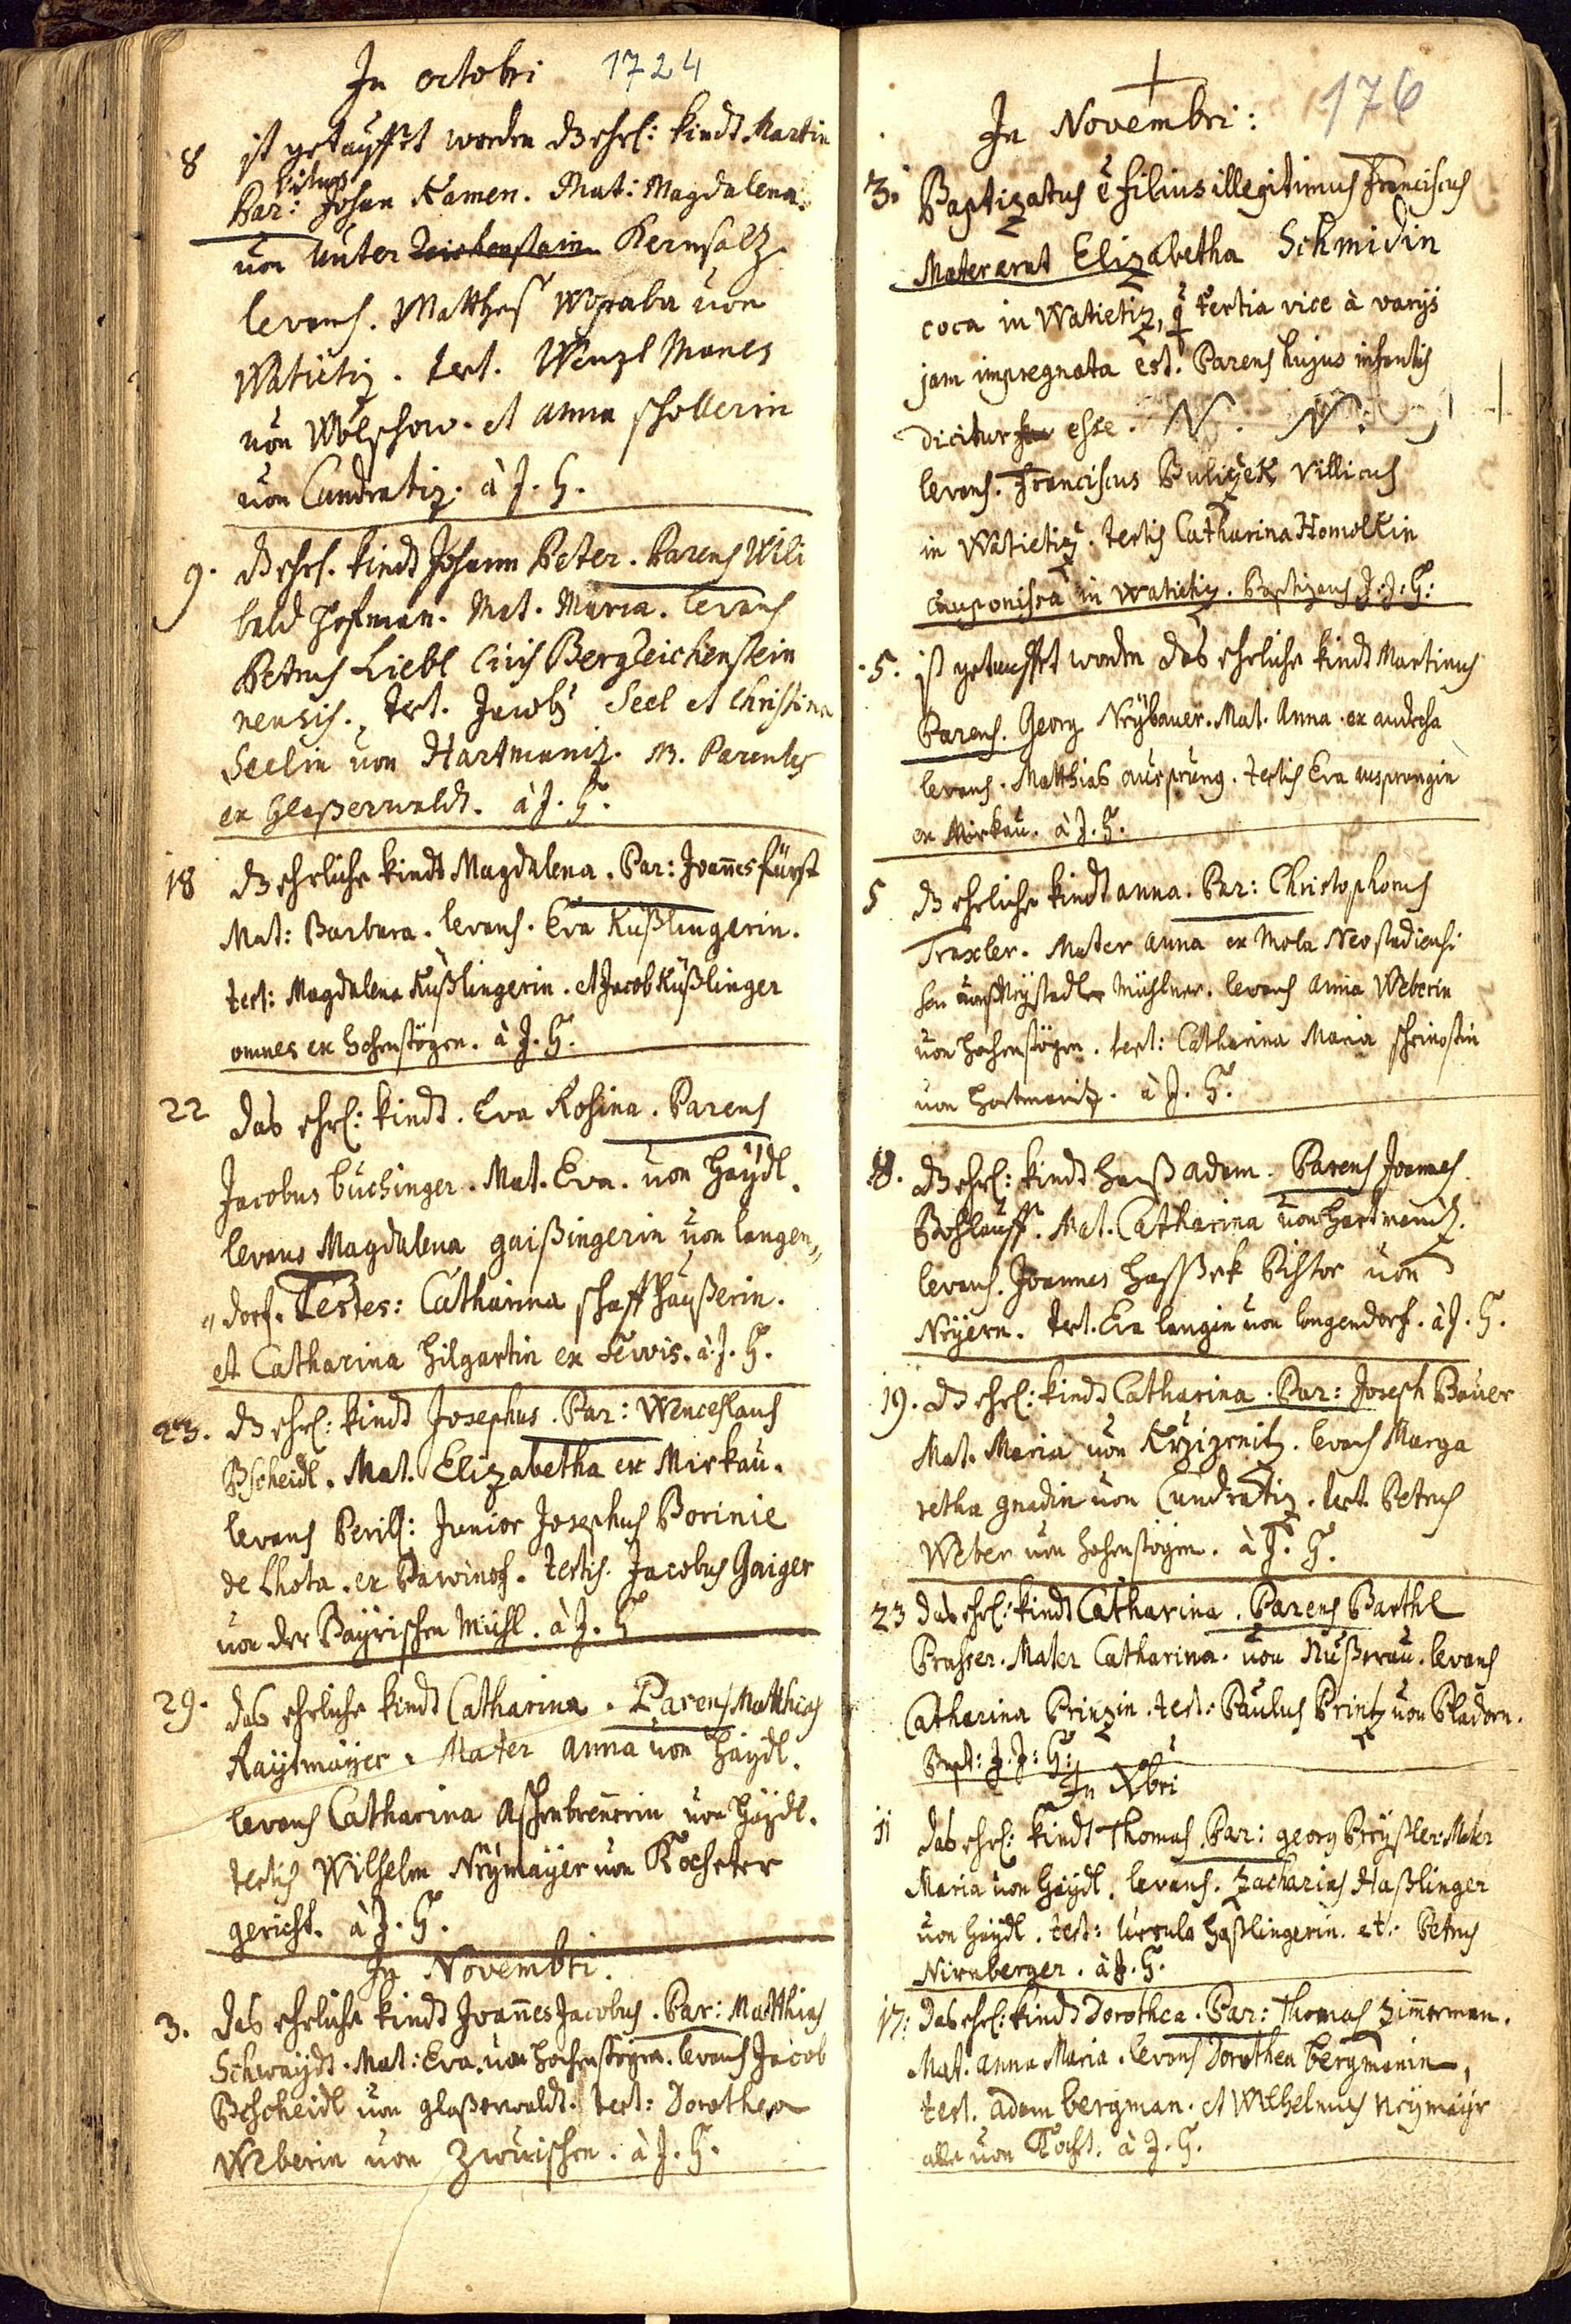 In octobri 1724
8 ist getaufft worden ds ehrl: kindt Martin
Vitus
Par: Johan Kamen. Mat: Magdalena
von Unter Kernsalz
levans. Matthes von
Watietiz. test. Wenzl Manes
von Wolschow. et anna schollerin
von Cundratiz. à J. H.
9. ds ehrl. kindt Johann Peter. Parens Wili
bald Hofman. Mat. Maria. levans
Petrus Liebl Civis Bergreichenstein
nensis. test. Jacob Seel et Christina
Seelin von Hartmaniz. NB. Parentes
ex Glaßerwaldt. à J. H.
18 ds ehrliche kindt Magdalena. Par: Joannes fürst
Mat: Barbara. levans. Eva Kußlingerin.
test: Magdalena Kußlingerin. et Jacob Kußlinger
omnes ex Hohenstögen. à J. H.
22 das ehrl: kindt. Eva Rosina. Parens
Jacobus büchinger. Mat. Eva. von Haÿdl.
levans Magdalena gaißingerin von langen„
„dorf. Testes: Catharina schaffhaußerin.
et Catharina Hilgartin ex Tewis. à J. H.
23. ds ehrl: kindt Josephus. Par: Wenceslaus
Bscheidl. Mat. Elizabetha ex Mirkau.
levans Perill: Junior Josephus Borinie
de Lhota. ex Dawinof. testis. Jacobus Gaiger
von der Baÿrischen Mühl. à J. H
29. das ehrliche kindt Catharina. Parens Matthias
Raÿtmaÿer. Mater anna von Haÿdl.
levans Catharina Aschenbrenerin von Haÿdl.
testis Wilhelm Neÿmaÿer von Kocheter
gericht. à J. H.
In Novembri.
3. das ehrliche kindt Joannes Jacobus. Par: Matthias
Schwaÿdt. Mat: Eva. von Hohenstögen. levans Jacob
Bescheidl von glaßerwaldt. test: Dorothea
Weberin von Zwuischen. à J. H.
176
In Novembri:
3. Baptizatus ē filius illegitimus Franciscus
Mater erat Elizabetha Schmidin
coca in Watietiz, q tertia vice à varÿs
jam impregnata est. Parens hujus infantis
dicitur esse. N. N.
levans. Franciscus Pulizek Villicus
in Watietiz. testis Catharina Homolkin
cauponissa in Watietiz. Baptizans J. J. H:
5. ist getaufft worden das ehrliche kindt Martinus
Parens. Georg Neÿbauer. Mat. Anna. ex
levans. Matthias ausprung. testis Eva ausprungin
ex Mirkau. à J. H.
5 ds ehrliche kindt anna. Par: Christophorus
Traxler. Mater anna ex Mola Neostadiensi
Mühlner. levans anna Weberin
von Hohenstögen. test: Catharina Maria
von Hartmaniz. à J. H.
8. ds ehrl: kindt Hanß adam. Parens Joannes
Bohlauff. Mat. Catharina von Hartmaniz.
levans. Joannes Haßek Pistor von
Neÿern. test. Eva langin von langendorf. à J. H.
19. ds ehrl: kindt Catharina. Par: Joseph Bauer
Mat. Maria von Krzizenitz. levans Marga
retha gnadin von Cundratiz. test. Petrus
Weber von Hohenstögen. à J. H.
23 das ehrl: kindt Catharina. Parens Barthl
Prasser. Mater Catharina. von Nußerau. levans
Catharina Prinzin. test: Paulus Printz von Pladorn.
Bapt: J. J: H:
In Xbri
11 das ehrl: kindt Thomas. Par: georg Preÿsler. Mater
Maria von Haÿdl. levans. Zacharias Haßlinger
von Haÿdl. test: Ursula Haßlingerin. et: Petrus
Nirnberger. à J. H.
17: das ehrl: kindt Dorothea. Par: Thomas Zimmerman.
Mat. anna Maria. levans Dorothea bergmanin,
test. adam bergman. et Wilhelmus Neÿmaÿr
alle von Kocht. à J. H.